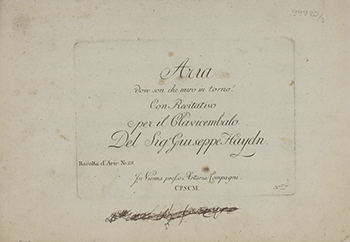 Aria
dove son che miro in torno.
Con Recitativo
per il Clavicembalo
Del Sig.r Giuseppe Haydn.
Raccolta d'Arie No 23
In Vienna presso Artaria Compagni
C.P.S.C.M.